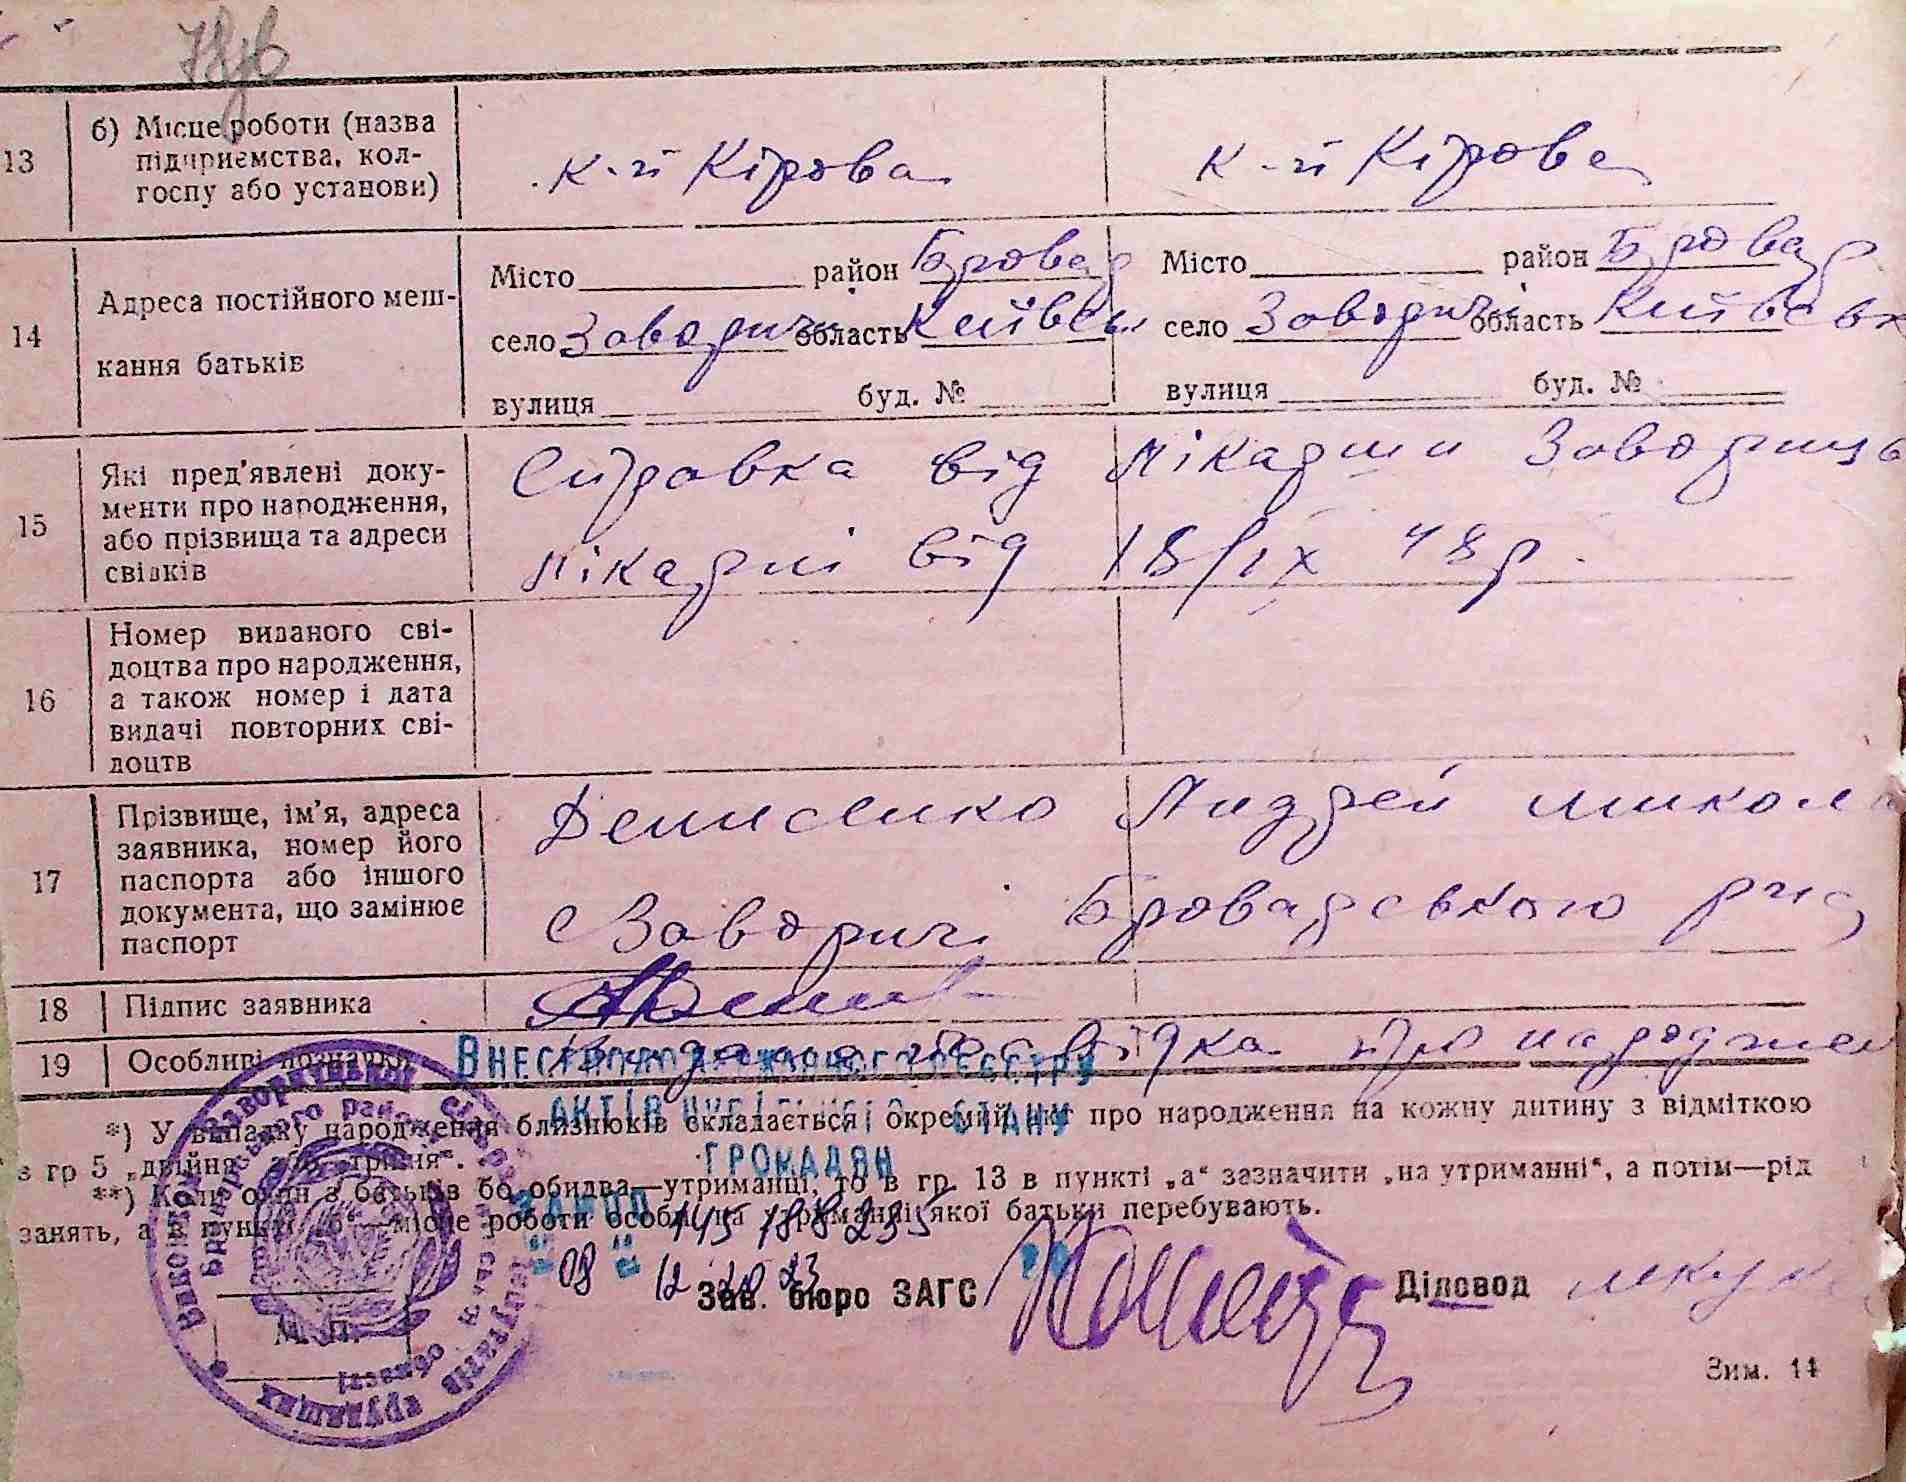 78
13 б) Місце роботи (назва підприємства, колгоспу або установи)
к-п Кірова к-п Кірова
14 Адреса постійного мешкання батьків
Місто район Бровар Місто район Бровар
село Заворичі область Київськ село Заворичі область Київськ
вулиця буд. № вулиця буд. №
15 Які пред'явлені документи про народження, або прізвища та адреси свідків
Справка від лікарни Заворицьк
лікарні від 18/IX 48 р.
16 Номер виданого свідоцтва про народження, а також номер і дата видачі повторних свідоцтв
17 Прізвище, ім'я, адреса заявника, номер його паспорта або іншого документа, що замінює паспорт
Денисенко Андрей Микол
с Заворичі Броварського р-на
18 Підпис заявника
19 Особливі позначки Видана посвідка про народжен
ВНЕСЕНО ДО ДЕРЖАВНОГО РЕЄСТРУ
АКТІВ ЦИВІЛЬНОГО СТАНУ
ГРОМАДЯН
*) У випадку народження близнюків складається окремий акт про народження на кожну дитину з відміткою
в гр 5 „двійня“ або „трійня“.
**) Коли один з батьків бо обидва—утриманці, то в гр. 13 в пункті „а“ зазначити „на утриманні“, а потім—рід
занять, а в пункті „б“—місце роботи особи, на утриманні якої батьки перебувають.
"08" 12 2023
Зав. бюро ЗАГС Діловод
М. П.
Зим. 14